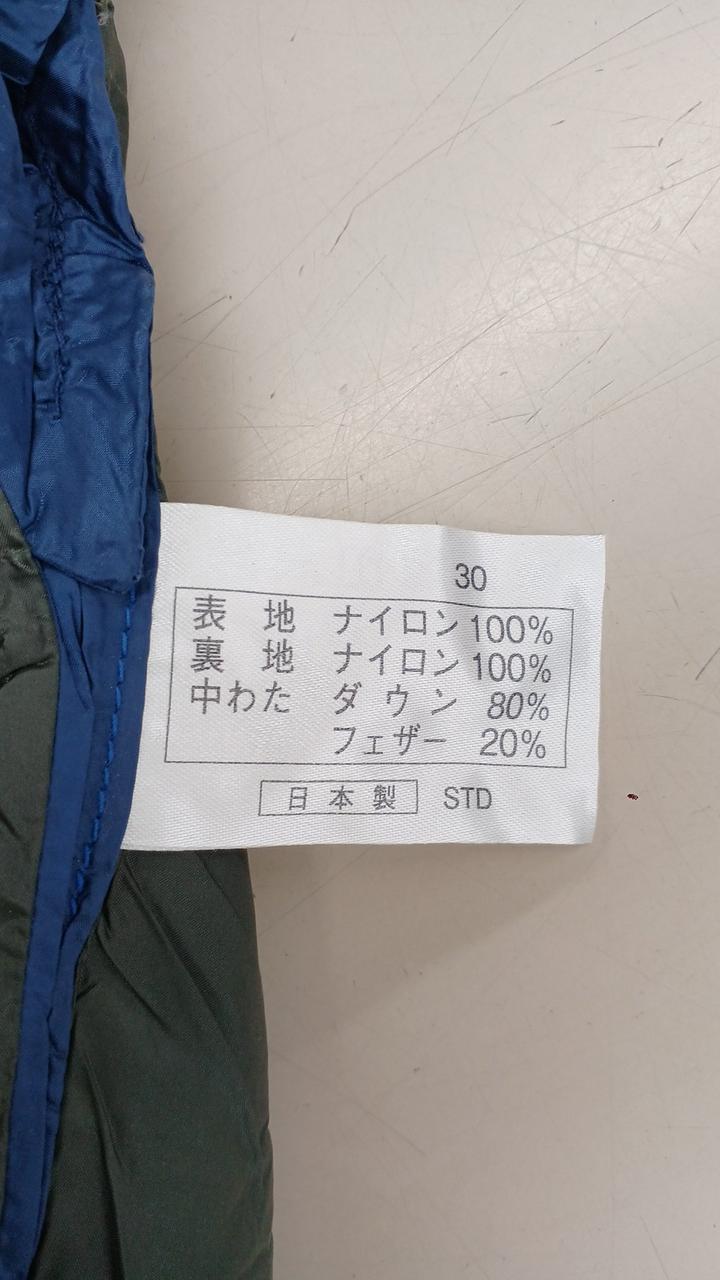 30
表 地 ナイロン 100%
裏 地 ナイロン 100%
中わた ダウン 80%
フェザー 20%
日本製 STD